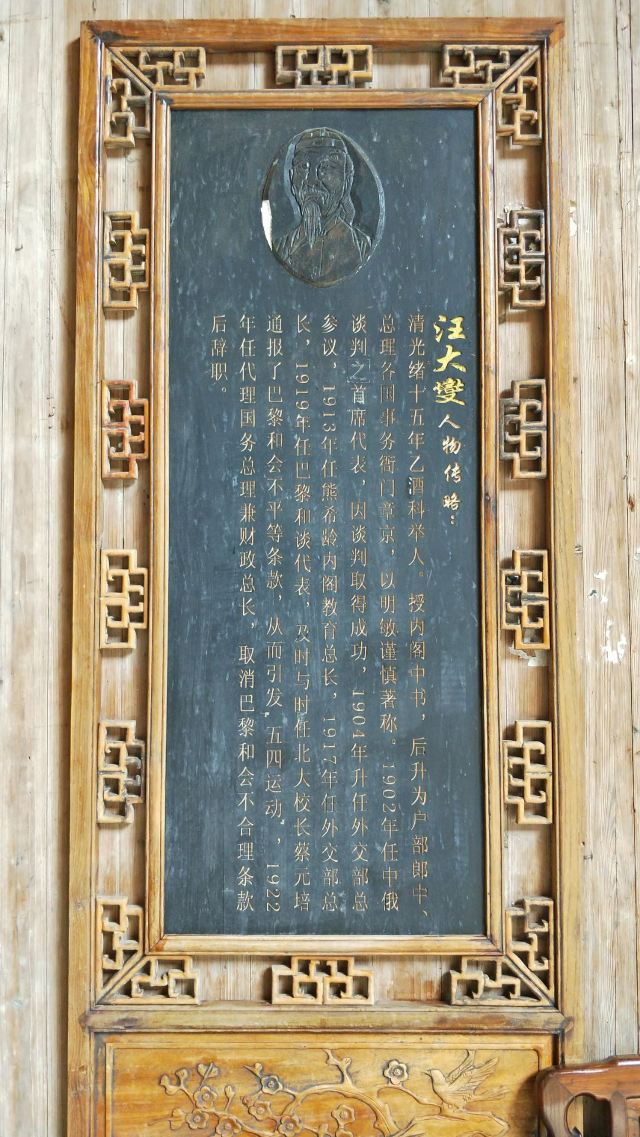 汪大燮人物传略：
清光绪十五年乙酒科举人。授内阁中书，后升为户部郎中、
总理各国事务衙门章京，以明敏谨慎著称。1902年任中俄
谈判之首席代表，因谈判取得成功，1904年升任外交部总
参议，1913年任熊希龄内阁教育总长，1917年任外交部总
长，1919年任巴黎和谈代表，及时与时任北大校长蔡元培
通报了巴黎和会不平等条款，从而引发“五四运动”，1922
年任代理国务总理兼财政总长，取消巴黎和会不合理条款
后辞职。